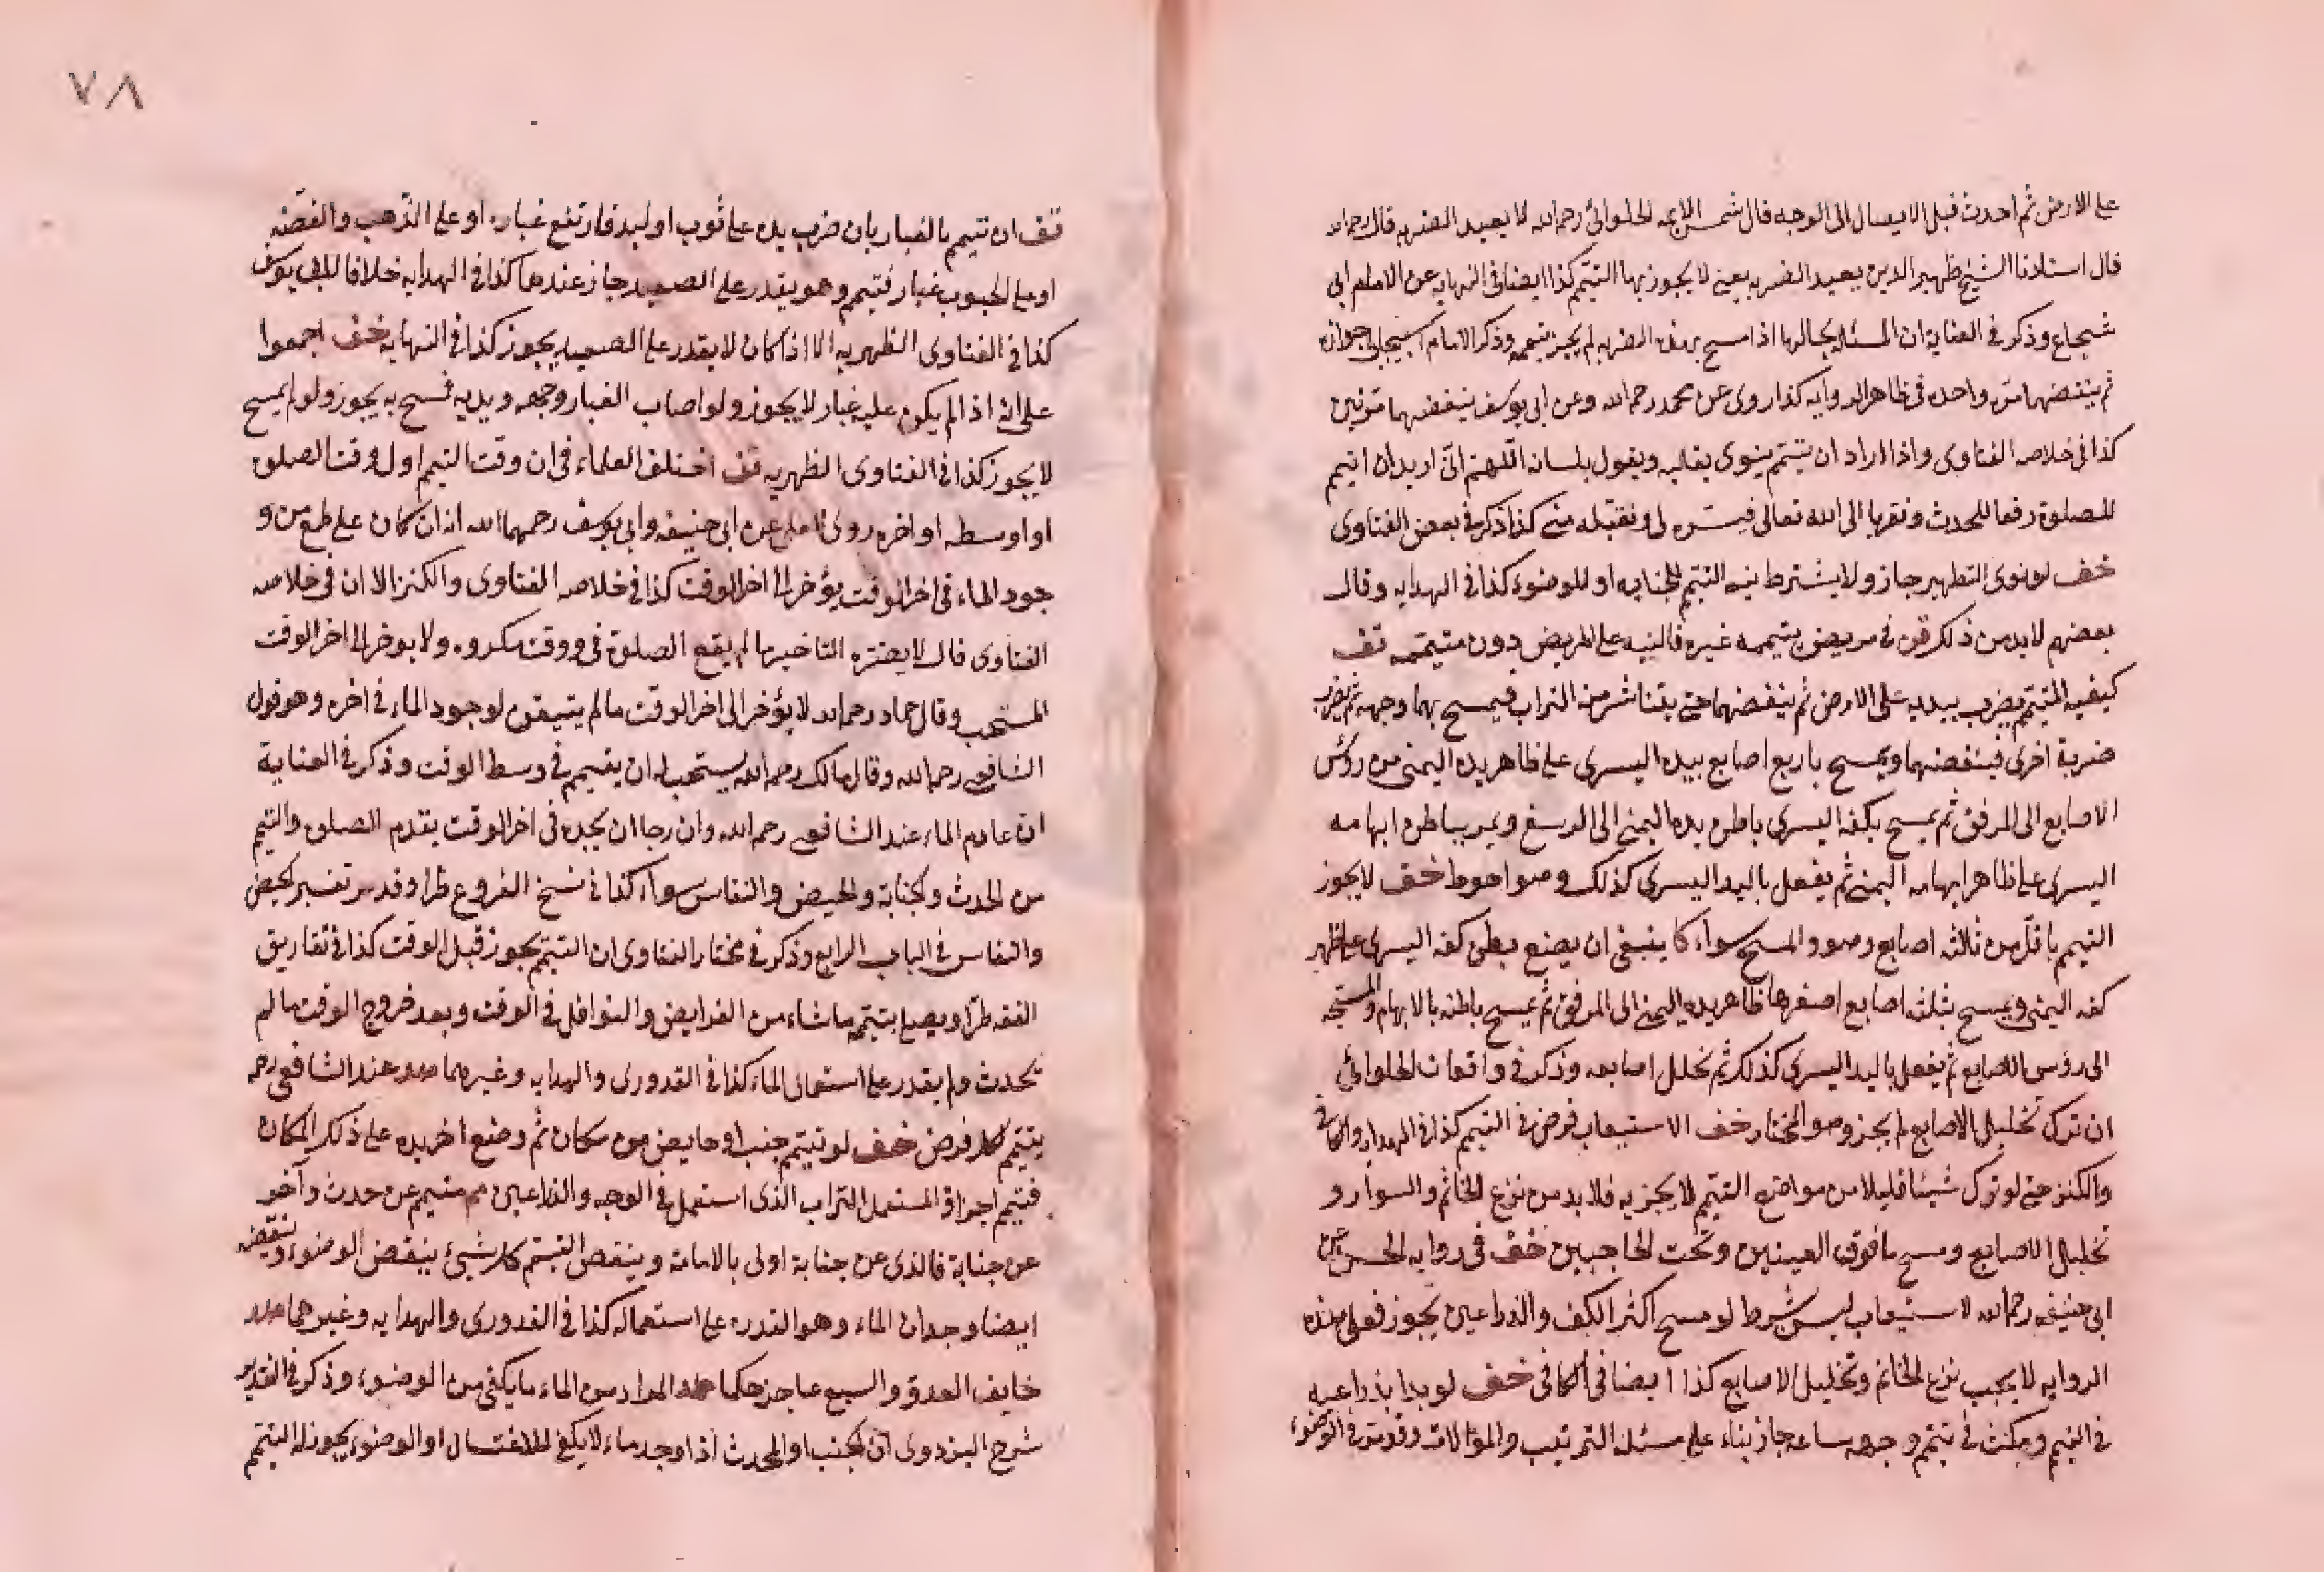 على الارض ثم احدث قبل الايصال الى الوجه قال شمس الايمه الحلوائي رحمه الله لا يعيد الضربه قال رحمه الله
قال استادنا الشيخ ظهير الدين يعيد الضربه يعني لا يجوز بها التيمم كذا ايضا في النهايه عن الامام ابى
شجاع وذكر في العناية ان المسئله بحالها اذا مسح بهذه الضربه لم يجز تيممه وذكر الامام اسبيجابى جوازه
ثم ينفضهما مرّه واحده في ظاهر الروايه كذا روى عن محمد رحمه الله وعن ابى يوسف ينفضهما مرّتين
كذا في خلاصه الفتاوى واذا اراد ان يتيمم ينوى بقلبه ويقول بلسانه اللّهمّ انّى اريد ان اتيمم
للصلوة رفعا للحدث وتقربا الى الله تعالى فيسّره لى وتقبّله منى كذا ذكره في بعض الفتاوى
خف لو نوى التطهير جاز ولا يشترط نيه التيمم للجنابه او للوضوء كذا في الهدايه وقال
بعضهم لابد من ذلك في مريض يتيممه غيره فالنيه على المريض دون متيممه قف
كيفيه التيمم يضرب بيديه على الارض ثم ينفضهما حتى يتناثر منه التراب فيمسح بهما وجهه ثم يضرب
ضربة اخرى فينفضهما ويمسح باربع اصابع بيده اليسرى على ظاهر يده اليمنى من رؤس
الاصابع الى المرفق ثم يمسح بكفه اليسرى باطن يده اليمنى الى الرسغ ويمر بباطن ابهامه
اليسرى على ظاهر ابهامه اليمنى ثم يفعل باليد اليسرى كذلك وهو احوط خف لا يجوز
التيمم باقلّ من ثلاثه اصابع وهو والمسح سواء كا ينبغى ان يضع بطن كفه اليسرى على ظهر
كفه اليمنى ويمسح بثلثه اصابع اصغرها ظاهر يده اليمنى الى المرفق ثم يمسح باطنه بالابهام والمسبحه
الى رؤس الاصابع ثم يفعل باليد اليسرى كذلك ثم يخلل اصابعه وذكر في واقعات الحلوائي
ان ترك تخليل الاصابع لم يجز وهو المختار خف الاستيعاب فرض في التيمم كذا في الهدايه والكافى
والكنز حتى لو ترك شيئا قليلا من مواضع التيمم لا يجزيه فلابد من نزع الخاتم والسوار و
تخليل الاصابع ومسح ما فوق العينين وتحت الحاجبين خف في روايه الحسن عن
ابى حنيفه رحمه الله لاستيعاب ليس بشرط لو مسح اكثر الكف والذراعين يجوز فعلى هذه
الروايه لا يجب نزع الخاتم وتخليل الاصابع كذا ايضا في الكافى خف لو بدا بذراعيه
في التيمم ومكث في تيمم وجهه ساعه جاز بناء على مسئله الترتيب والموالات وقد مرّ في الوضوء
٧٨
قف ان تيمم بالغبار بان ضرب يده على ثوب او لبد فارتفع غباره او على الذّهب والفضّه
او على الحبوب غبار فتيمم وهو يقدر على الصعيد جاز عندهما كذا في الهدايه خلافا لابى يوسف
كذا في الفتاوى الظهيريه الا اذا كان لا يقدر على الصعيد يجوز كذا في النهايه خف اجمعوا
على انه اذا لم يكون عليه غبار لا يجوز ولو اصاب الغبار وجهه ويديه فمسح به يجوز ولو لم يمسح
لا يجوز كذا في الفتاوى الظهريه قف اختلف العلماء في ان وقت التيمم اول وقت الصلوة
او اوسطه او اخره روى عن ابى حنيفه وابى يوسف رحمهما الله انه ان كان على طمع من و
جود الماء في اخر الوقت يؤخر الى اخر الوقت كذا في خلاصه الفتاوى والكنز الا ان في خلاصه
الفتاوى قال لا يفترّه التاخير ما لم يقع الصلوة في ووقت مكروه ولا يوخر الى اخر الوقت
المستحب وقال حماد رحمه الله لا يؤخر الى اخر الوقت ما لم يتيقن لوجود الماء في اخره وهو قول
الشافعى رحمه الله وقال مالك رحمه الله يستحب له ان يتيمم في وسط الوقت وذكر في العناية
ان عادم الماء عند الشافعى رحمه الله وان رجا ان يجده في اخر الوقت يقدم الصلوة والتيمم
من الحدث والجنابة والحيض والنفاس سواء كذا في نسخ الفروع طرا وقد مر تفسير الحيض
والنفاس في الباب الرابع وذكر في مختار الفتاوى ان التيمم يجوز قبل الوقت كذا في تفاريق
الفقه طرّا ويصلى بتيممه ما شاء من الفرايض والنوافل في الوقت وبعد خروج الوقت ما لم
يحدث ولم يقدر على استعمال الماء كذا في القدورى والهدايه وغيرهما عند الشافعى رحمه
يتيمم لكل فرض خف لو تيمم جنب او حايض من مكان ثم وضع اخر يده على ذلك المكان
فتيمم اجزاه المستعمل التراب الّذى استعمل في الوجه والذراعين متيمم عن حدث وآخر
عن جنابة فالذى عن جنابة اولى بالامامة وينقض التيمم كل شيئ ينقض الوضوء وينقضه
ايضا وجدان الماء وهو القدره على استعماله كذا في القدورى والهدايه وغيرهما
خايف العدوّ والسبع عاجز حكما المراد من الماء ما يكفى من الوضوء وذكر في التقدير
شرح البزدوى انّ الجنب او المحدث اذا وجد ماء لا يكفى للاغتسال او الوضوء يجوز له التيمم